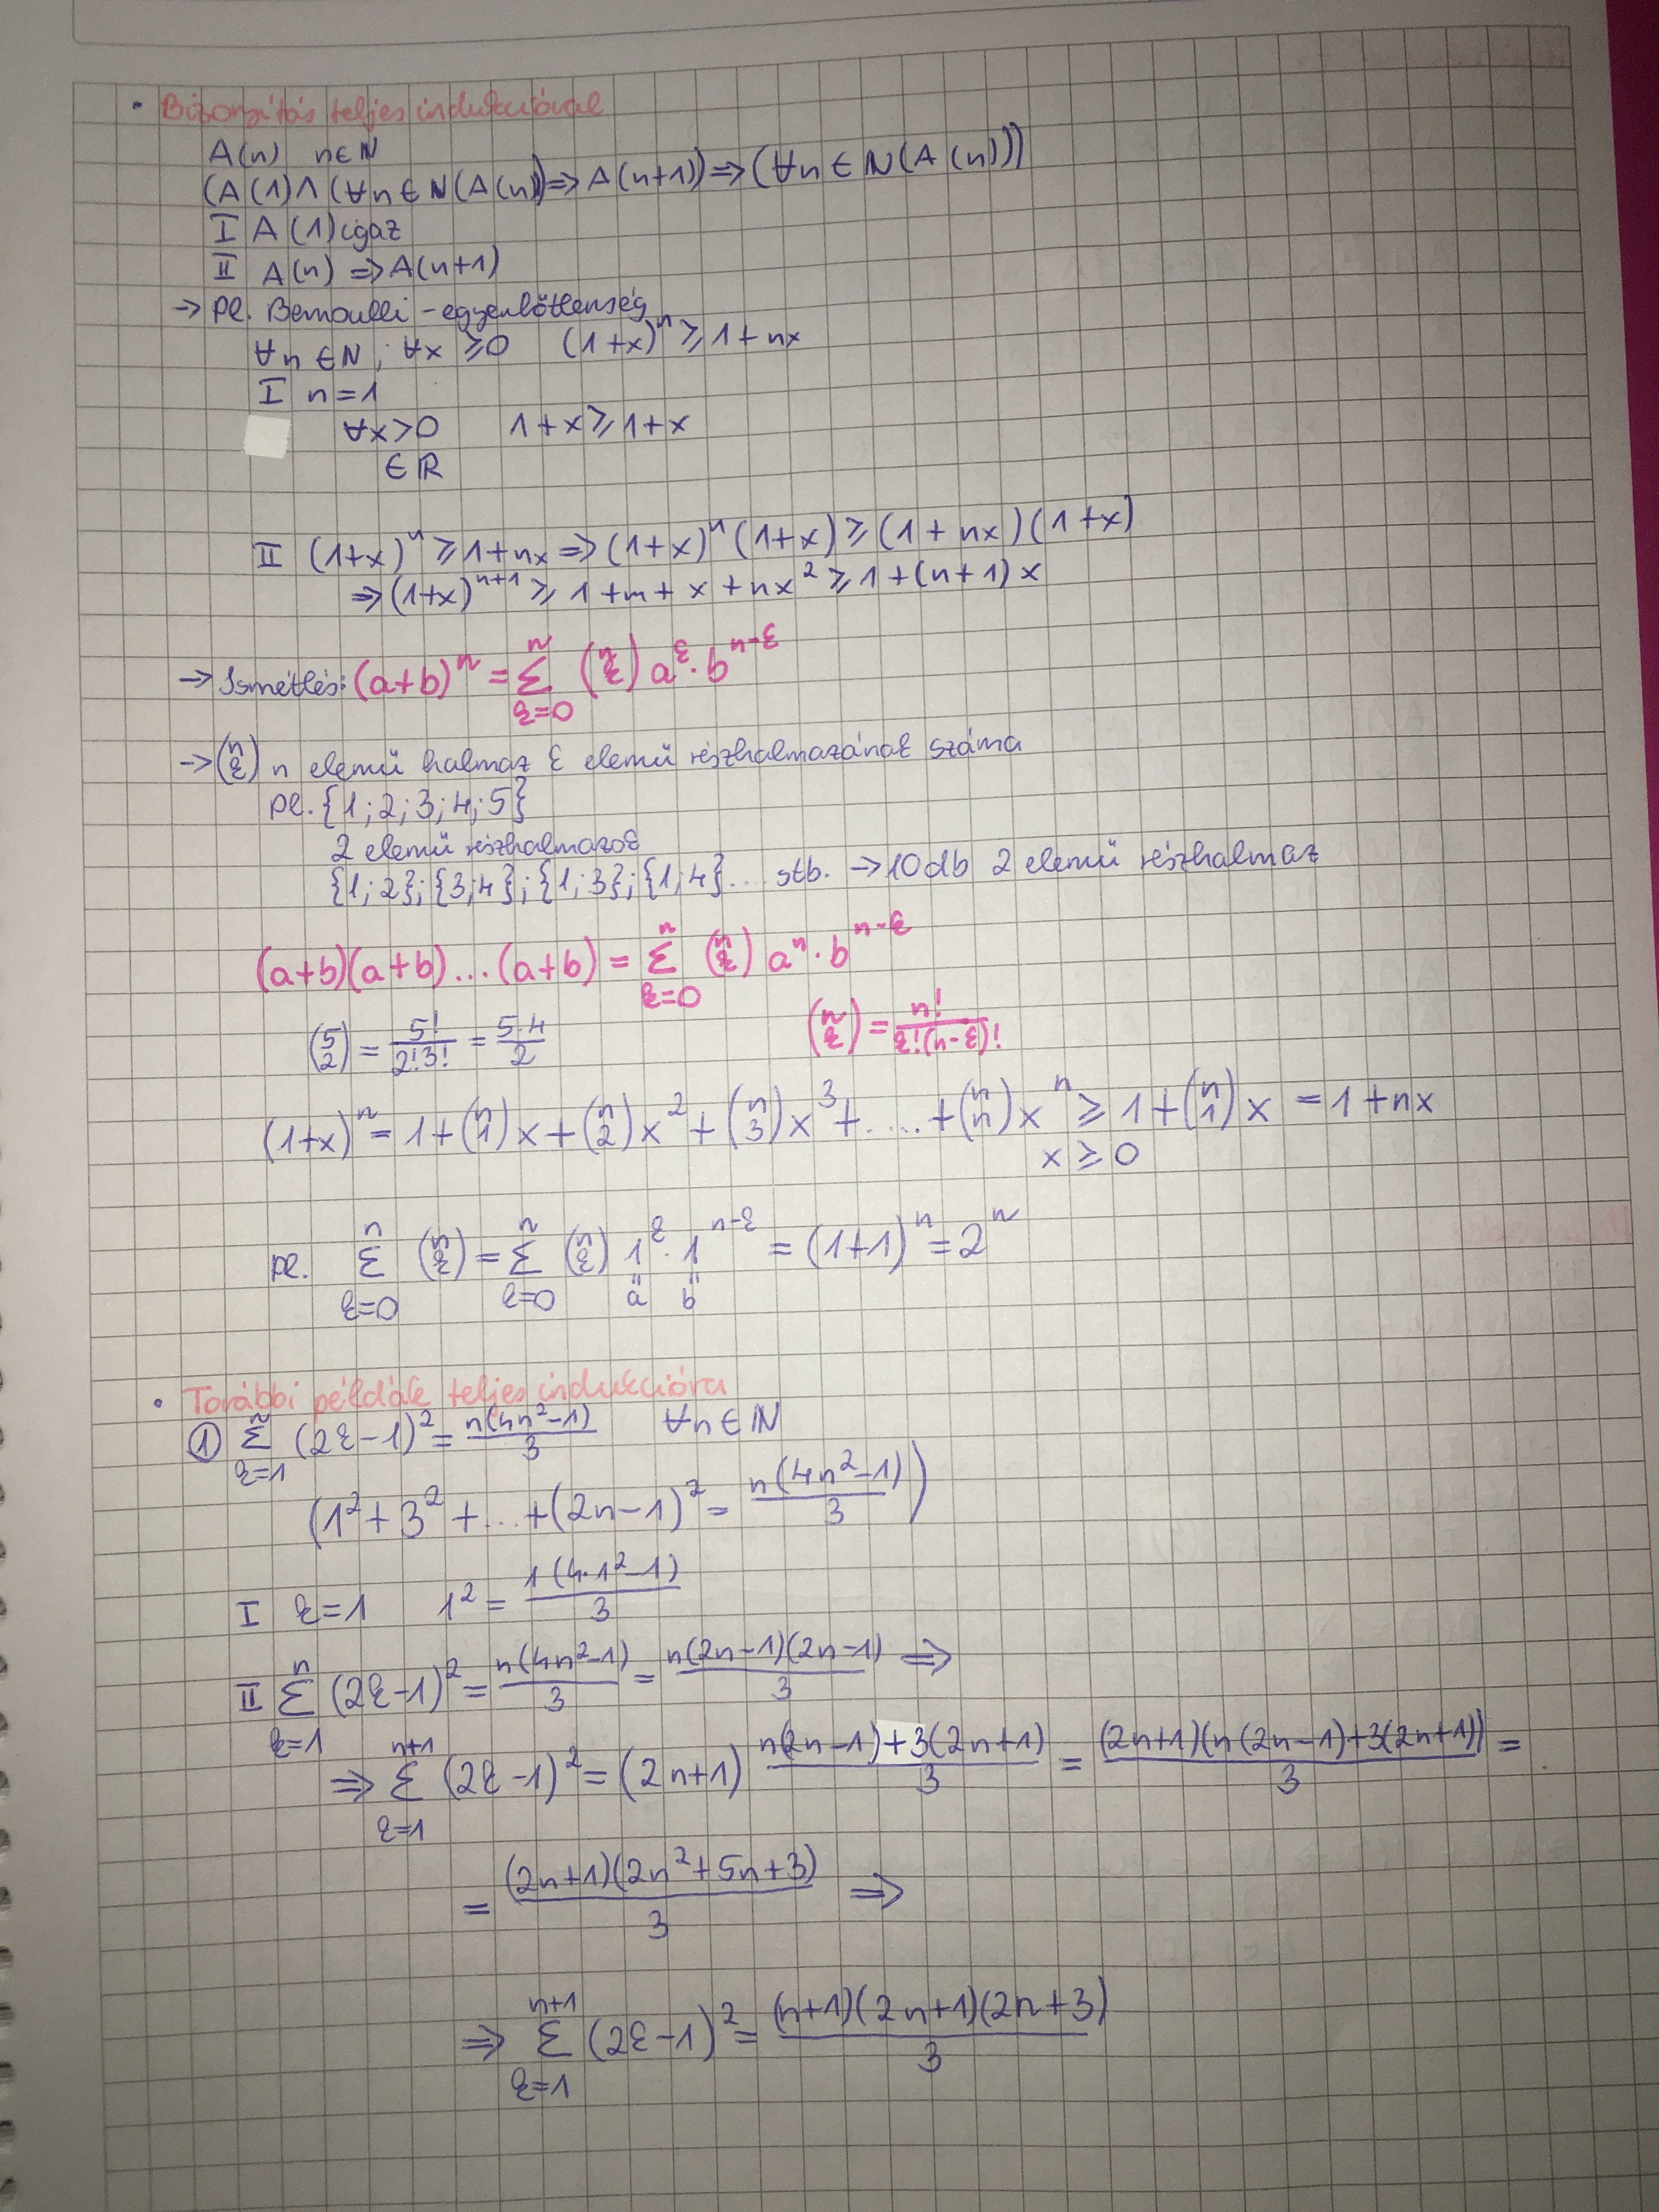 • Bizonyítás teljes indukcióval
A(n) n∈ℕ
(A(1)∧(∀n∈ℕ(A(n))⇒A(n+1))⇒(∀n∈ℕ(A(n)))
I A(1) igaz
II A(n) ⇒ A(n+1)
→ Pl. Bernoulli-egyenlőtlenség
∀n∈ℕ; ∀x ≥0 (1+x)^n ≥ 1+nx
I n=1
∀x>0 1+x ≥ 1+x
∈ℝ
II (1+x)^n ≥ 1+nx ⇒ (1+x)^n (1+x) ≥ (1+nx)(1+x)
⇒ (1+x)^{n+1} ≥ 1+m+x+nx² ≥ 1+(n+1)x
→ Ismétlés: (a+b)^n = \sum_{k=0}^{n} \binom{n}{k} a^k · b^{n-k}
→ \binom{n}{k} n elemű halmaz k elemű részhalmazának száma
pl. {1;2;3;4;5}
2 elemű részhalmazok
{1;2};{3;4};{1;3};{1;4}... stb. → 10 db 2 elemű részhalmaz
(a+b)(a+b)...(a+b) = \sum_{k=0}^{n} \binom{n}{k} a^n · b^{n-k}
\binom{5}{2} = \frac{5!}{2!3!} = \frac{5·4}{2} \binom{n}{k} = \frac{n!}{k!(n-k)!}
(1+x)^n = 1+\binom{n}{1}x+\binom{n}{2}x²+\binom{n}{3}x³+....+\binom{n}{n}x^n ≥ 1+\binom{n}{1}x = 1+nx
x ≥ 0
Pl. \sum_{k=0}^{n} \binom{n}{k} = \sum_{k=0}^{n} \binom{n}{k} 1^k · 1^{n-k} = (1+1)^n = 2^n
" "
a b
• További példák teljes indukcióra
① \sum_{k=1}^{n} (2k-1)² = \frac{n(4n²-1)}{3} ∀n∈ℕ
(1²+3²+...+(2n-1)² = \frac{n(4n²-1)}{3})
I k=1 1² = \frac{1(4·1²-1)}{3}
II \sum_{k=1}^{n} (2k-1)² = \frac{n(4n²-1)}{3} = \frac{n(2n-1)(2n-1)}{3} ⇒
⇒ \sum_{k=1}^{n+1} (2k-1)² = (2n+1) \frac{n(2n-1)+3(2n+1)}{3} = \frac{(2n+1)(n(2n-1)+3(2n+1))}{3} =
= \frac{(2n+1)(2n²+5n+3)}{3} ⇒
⇒ \sum_{k=1}^{n+1} (2k-1)² = \frac{(n+1)(2n+1)(2n+3)}{3}